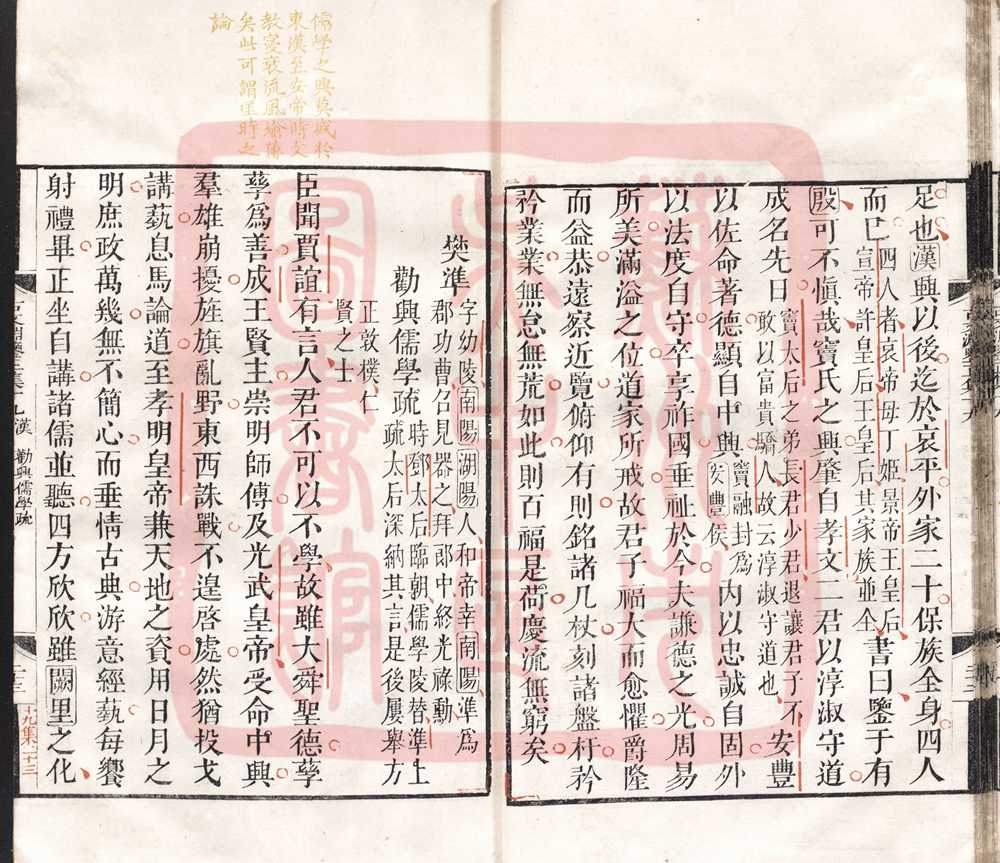 足也漢興以後迄於哀平外家二十保族全身四人
而已四人者哀帝母丁姬景帝王皇后宣帝許皇后王皇后其家族並全書曰鑒于有
殷可不慎哉竇氏之興肇自孝文二君以淳淑守道
成名先日竇太后之弟長君少君退讓君子不敢以富貴驕人故云淳淑守道也安豐
以佐命著德顯自中興竇融封為安豐侯內以忠誠自固外
以法度自守卒享祚國垂祉於今夫謙德之光周易
所美滿溢之位道家所戒故君子福大而愈懼爵隆
而益恭遠察近覽俯仰有則銘諸几杖刻諸盤杅矜
矜業業無怠無荒如此則百福是荷慶流無窮矣
儒學之興莫盛於
東漢至安帝時文
教寖衰流風喻傳
矣此可謂匡時之
論
樊準字幼陵南陽湖陽人和帝幸南陽準為郡功曹召見器之拜郎中終光祿勳
勸興儒學疏時鄧太后臨朝儒學陵替準上疏太后深納其言是後屢舉方
正敦樸仁賢之士
臣聞賈誼有言人君不可以不學故雖大舜聖德孳
孳為善成王賢主崇明師傅及光武皇帝受命中興
羣雄崩擾旌旗亂野東西誅戰不遑啓處然猶投戈
講藝息馬論道至孝明皇帝兼天地之資用日月之
明庶政萬幾無不簡心而垂情古典游意經藝每饗
射禮畢正坐自講諸儒並聽四方欣欣雖闕里之化
漢 勸興儒學疏
十九集·二十三